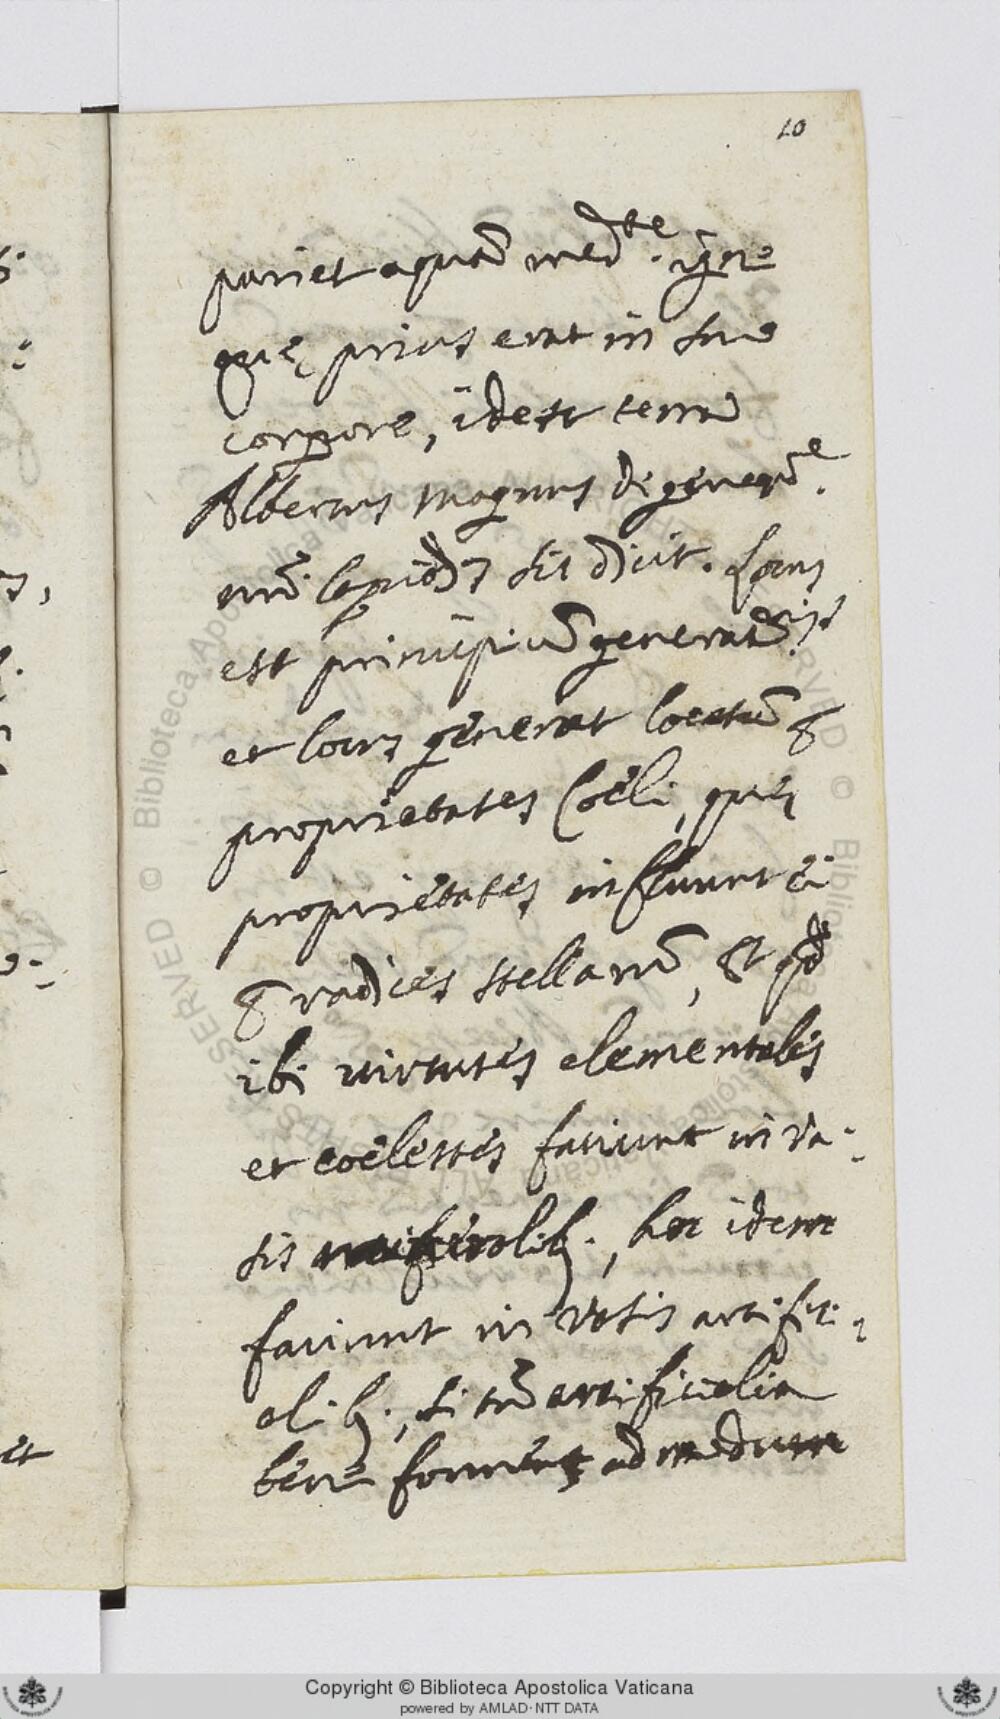 10
pariet aquā medte. igne
quę prius erat in suo
corpore, idest terra
Albertus Magnus di
lapidū sic dicit. Locus
est principiū generatōis
et locus generat locatū
proprietates Coeli, quę
proprietates influunt ei
radies stellarū, Et qd
ibi virtutes elementales
et coelestes faciunt in va-
sis, hoc idem
faciunt in vasis artifiti-
alib., si tn̄ artificialia
bene forment ad modum
Copyright © Biblioteca Apostolica Vaticana
powered by AMLAD·NTT DATA